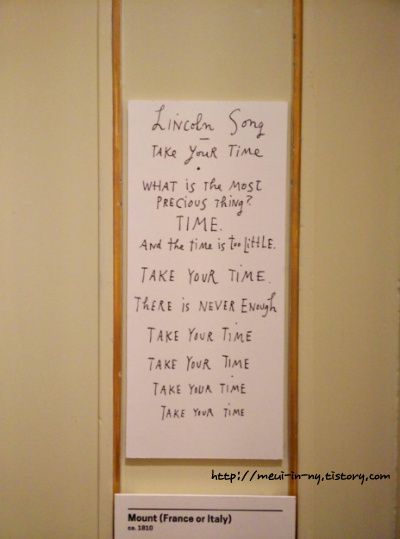 Lincoln Song
Take Your Time
WHAT is the MOST
PRECIOUS thing?
TIME.
And the time is too Little.
TAKE YOUR TIME.
There is NEVER Enough
TAKE YOUR TIME
TAKE YOUR TIME
TAKE YOUR TIME
TAKE YOUR TIME
http://meui-in-ny.tistory.com
Mount (France or Italy)
ca. 1810